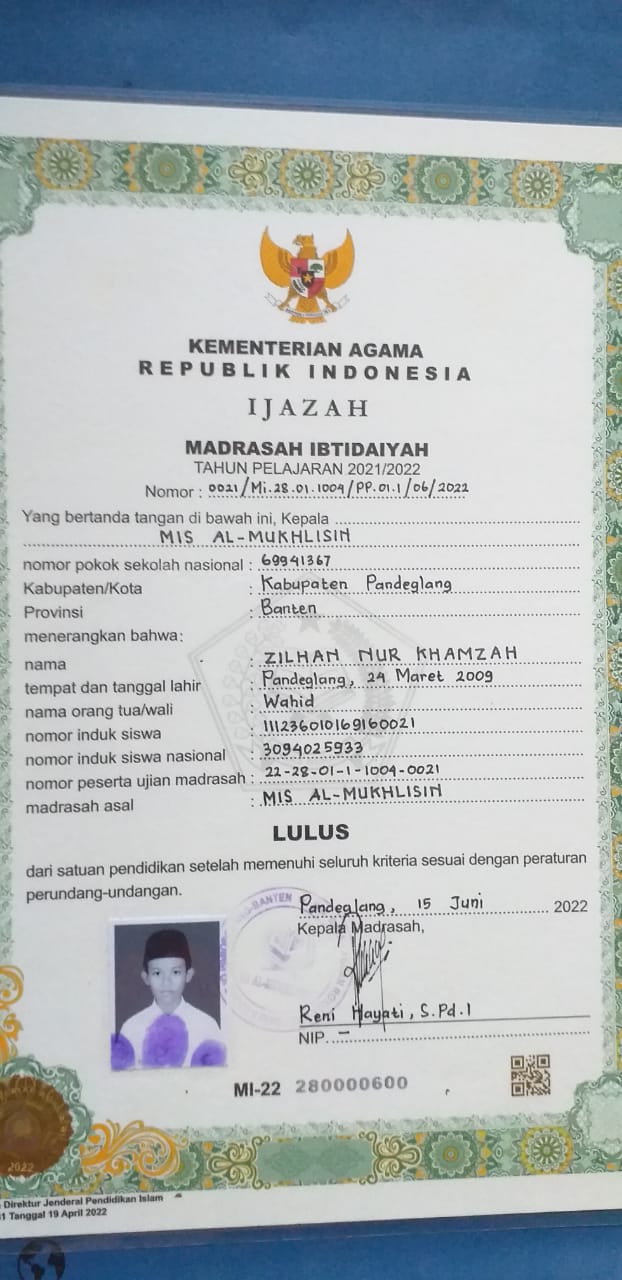 KEMENTERIAN AGAMA
REPUBLIK INDONESIA
IJAZAH
MADRASAH IBTIDAIYAH
TAHUN PELAJARAN 2021/2022
Nomor : 0021/Mi.28.01.1004/PP.01.1/06/2022
Yang bertanda tangan di bawah ini, Kepala
MIS AL-MUKHLISIN
nomor pokok sekolah nasional : 69941367
Kabupaten/Kota : Kabupaten Pandeglang
Provinsi : Banten
menerangkan bahwa:
nama : ZILHAN NUR KHAMZAH
tempat dan tanggal lahir : Pandeglang, 24 Maret 2009
nama orang tua/wali : Wahid
nomor induk siswa : 111236010169160021
nomor induk siswa nasional : 3094025933
nomor peserta ujian madrasah : 22-28-01-1-1004-0021
madrasah asal : MIS AL-MUKHLISIN
LULUS
dari satuan pendidikan setelah memenuhi seluruh kriteria sesuai dengan peraturan
perundang-undangan.
BANTEN
Pandeglang, 15 Juni 2022
Kepala Madrasah,
Reni Hayati, S.Pd.I
NIP. -
MI-22 280000600
2022
Direktur Jenderal Pendidikan Islam
1 Tanggal 19 April 2022